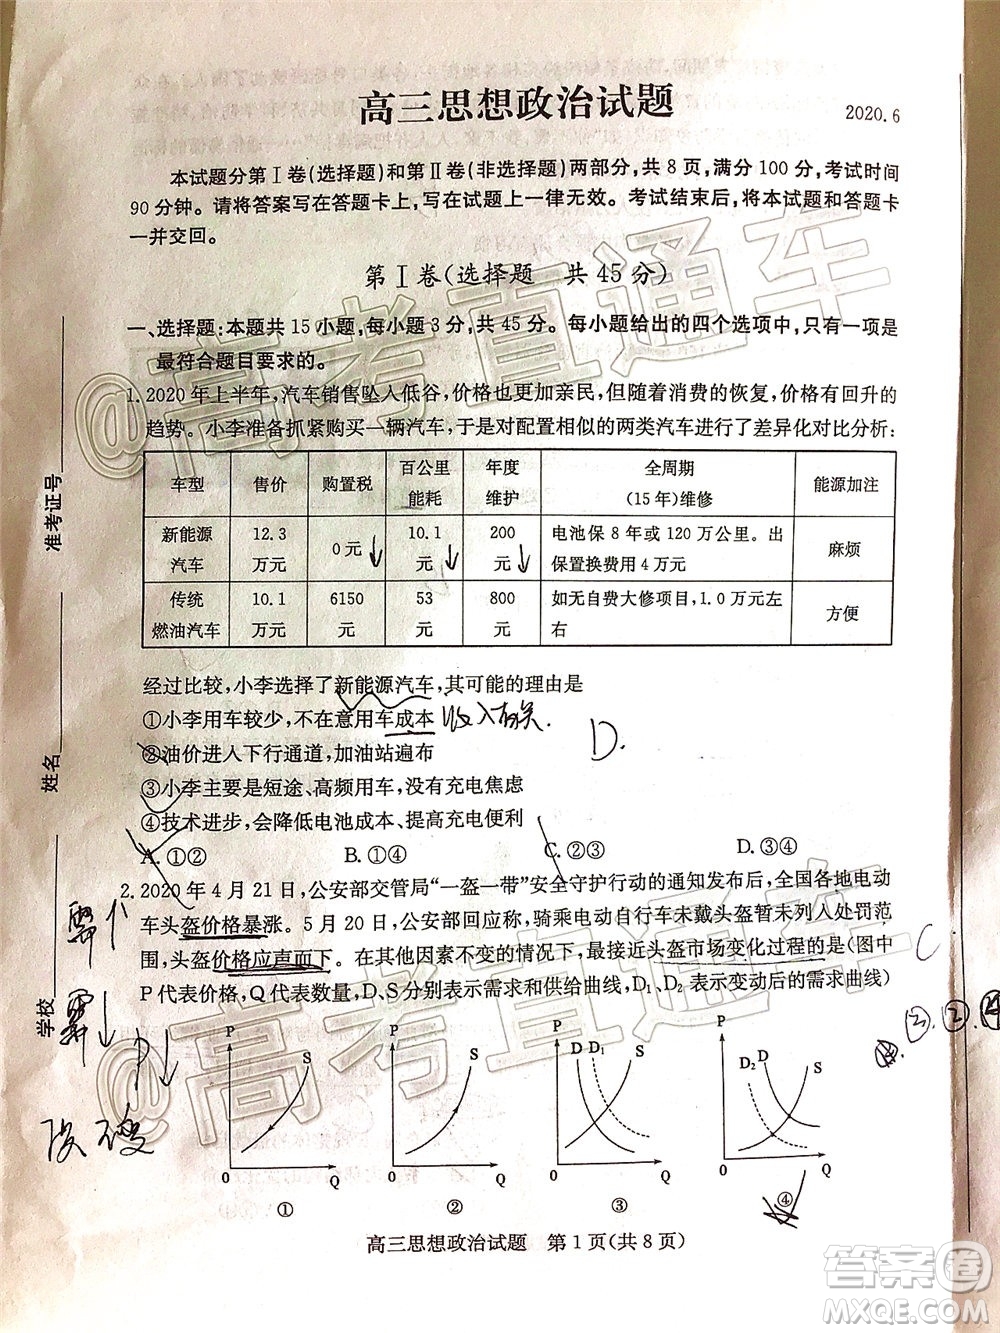 高三思想政治试题
2020.6
本试题分第Ⅰ卷(选择题)和第Ⅱ卷(非选择题)两部分,共8页,满分100分,考试时间
90分钟。请将答案写在答题卡上,写在试题上一律无效。考试结束后,将本试题和答题卡
一并交回。
第Ⅰ卷(选择题 共45分)
一、选择题:本题共15小题,每小题3分,共45分。每小题给出的四个选项中,只有一项是
最符合题目要求的。
1. 2020年上半年,汽车销售坠入低谷,价格也更加亲民,但随着消费的恢复,价格有回升的
趋势。小李准备抓紧购买一辆汽车,于是对配置相似的两类汽车进行了差异化对比分析:
车型 售价 购置税 百公里能耗 年度维护 全周期(15年)维修 能源加注
新能源汽车 12.3万元 0元 10.1元 200元 电池保8年或120万公里。出保置换费用4万元 麻烦
传统燃油汽车 10.1万元 6150元 53元 800元 如无自费大修项目,1.0万元左右 方便
经过比较,小李选择了新能源汽车,其可能的理由是
①小李用车较少,不在意用车成本
收入有关.
②油价进入下行通道,加油站遍布
D.
③小李主要是短途、高频用车,没有充电焦虑
④技术进步,会降低电池成本、提高充电便利
A.①② B.①④ C.②③ D.③④
2. 2020年4月21日,公安部交管局“一盔一带”安全守护行动的通知发布后,全国各地电动
车头盔价格暴涨。5月20日,公安部回应称,骑乘电动自行车未戴头盔暂未列入处罚范
围,头盔价格应声而下。在其他因素不变的情况下,最接近头盔市场变化过程的是(图中
P代表价格,Q代表数量,D、S分别表示需求和供给曲线,D₁、D₂表示变动后的需求曲线)
C
需↑
需↓
P↓
没变
③.②.④
P S 0 Q ①
P S 0 Q ②
P D D₁ S 0 Q ③
P D₂ D S 0 Q ④
高三思想政治试题 第1页(共8页)
准考证号
姓名
学校
@高考直通车
@高考直通车
答案圈
MXQE.COM